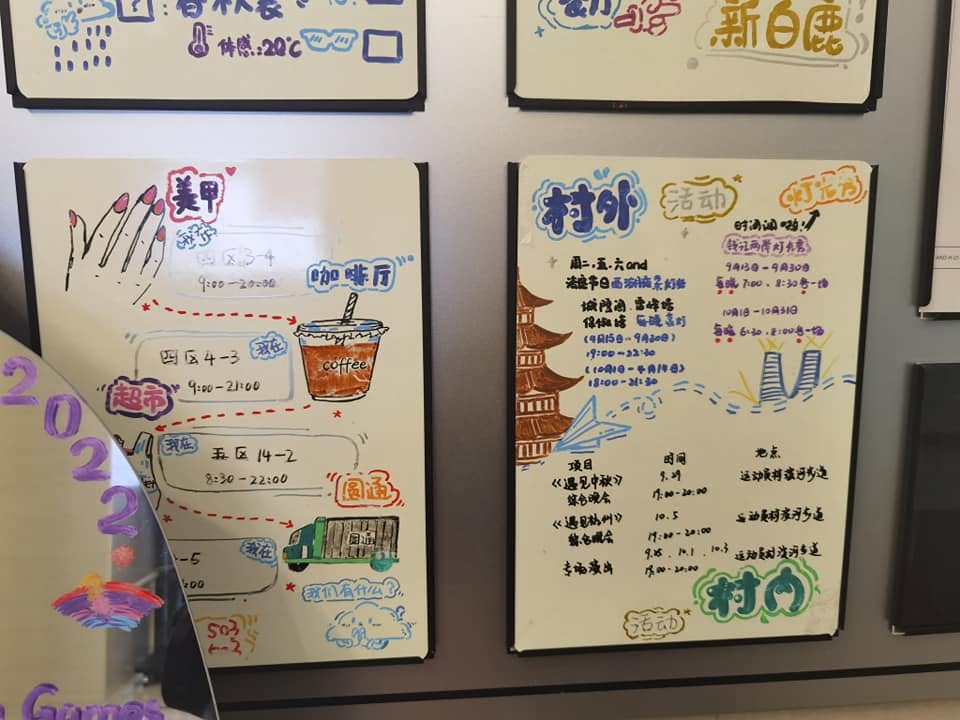 春秋装
体感:20℃
新白鹿
美甲
四区3-4
9:00-20:00
咖啡厅
coffee
四区4-3
我在
9:00-21:00
超市
我在
五区14-2
8:30-22:00
圆通
圆通
-5
我在
:00
我们有什么?
503
2022
Games
村外
活动
灯光秀
钱江两岸灯光秀
9月13日-9月30日
每晚7:00、8:30各一场
10月1日-10月31日
每晚6:30、8:00各一场
周二.五.六and
法定节日西湖
城隍阁 雷峰塔
保俶塔 每晚亮灯
(4月15日-9月30日)
19:00-22:30
(10月1日-4月14日)
18:00-21:30
项目 时间 地点
《遇见中秋》 9.29 运动员村滨河步道
综合晚会 19:00-20:00
《遇见杭州》 10.5 运动员村滨河步道
综合晚会 19:00-20:00
专场演出 9.25、10.1、10.3 运动员村滨河步道
19:00-20:00
村内
活动